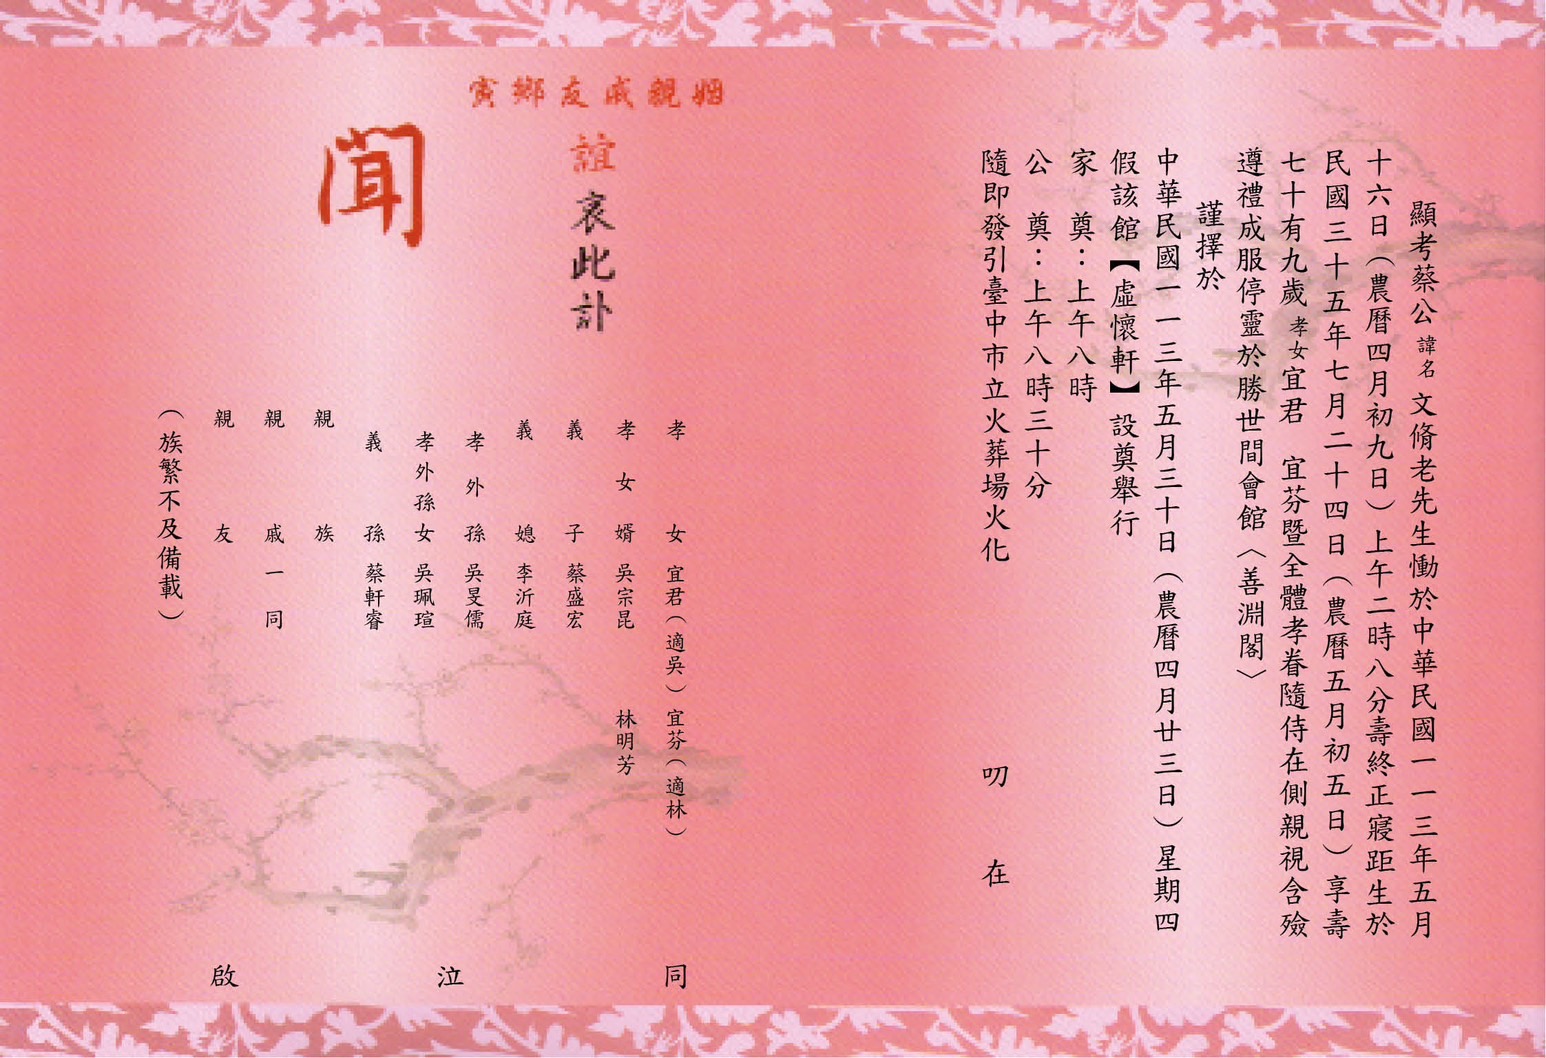 顯考蔡公諱名文脩老先生慟於中華民國一一三年五月
十六日（農曆四月初九日）上午二時八分壽終正寢距生於
民國三十五年七月二十四日（農曆五月初五日）享壽
七十有九歲孝女宜君　宜芬暨全體孝眷隨侍在側親視含殮
遵禮成服停靈於勝世間會館〈善淵閣〉
謹擇於
中華民國一一三年五月三十日（農曆四月廿三日）星期四
假該館【虛懷軒】設奠舉行
家　奠：上午八時
公　奠：上午八時三十分
隨即發引臺中市立火葬場火化
叨　在
姻親戚友鄉寅
誼哀此訃
聞
孝女　宜君（適吳）宜芬（適林）
孝女婿　吳宗昆　林明芳
義子　蔡盛宏
義媳　李沂庭
孝外孫　吳旻儒
孝外孫女　吳珮瑄
義孫　蔡軒睿
親族
親戚一同
親友
（族繁不及備載）
同泣啟